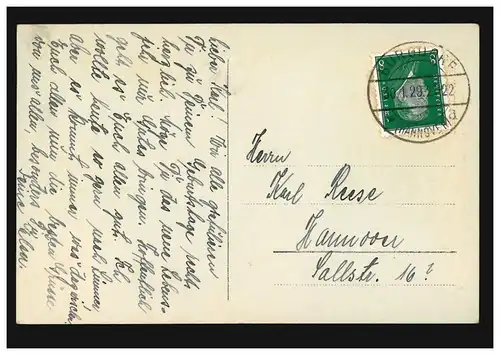 Lieber Karl! Wir alle gratulieren
Dir zu Deinem Geburtstage recht
herzlich. Möge Dir das neue Lebens-
jahr nur Gutes bringen. Hoffentlich
geht es Euch allen gut. Ich
wollte heute so gern nach Linden,
aber es kommt immer was dazwischen.
Euch allen nun die besten Grüsse
von uns allen, besonders
Herrn
Karl Reese
Hannover
Sallstr. 16
(HANNOVER)